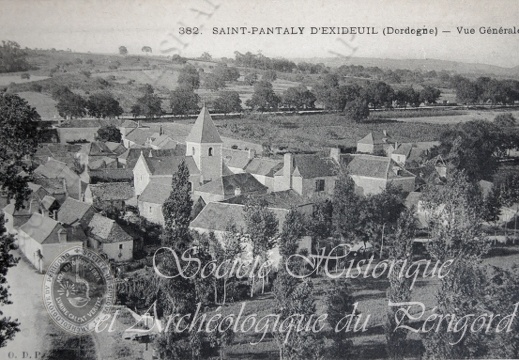 382. SAINT-PANTALY D'EXIDEUIL (Dordogne) — Vue Générale
Société Historique
et Archéologique du Périgord
O. D. P.